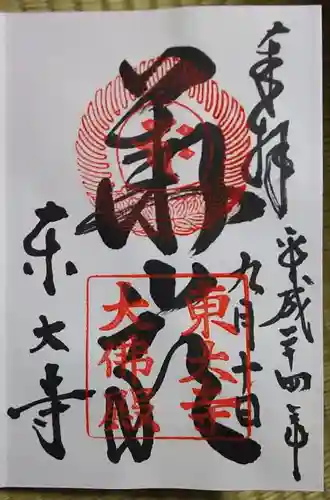 奉拝
平成二十四年
九月十日
華厳
東大寺
東大寺
大佛殿